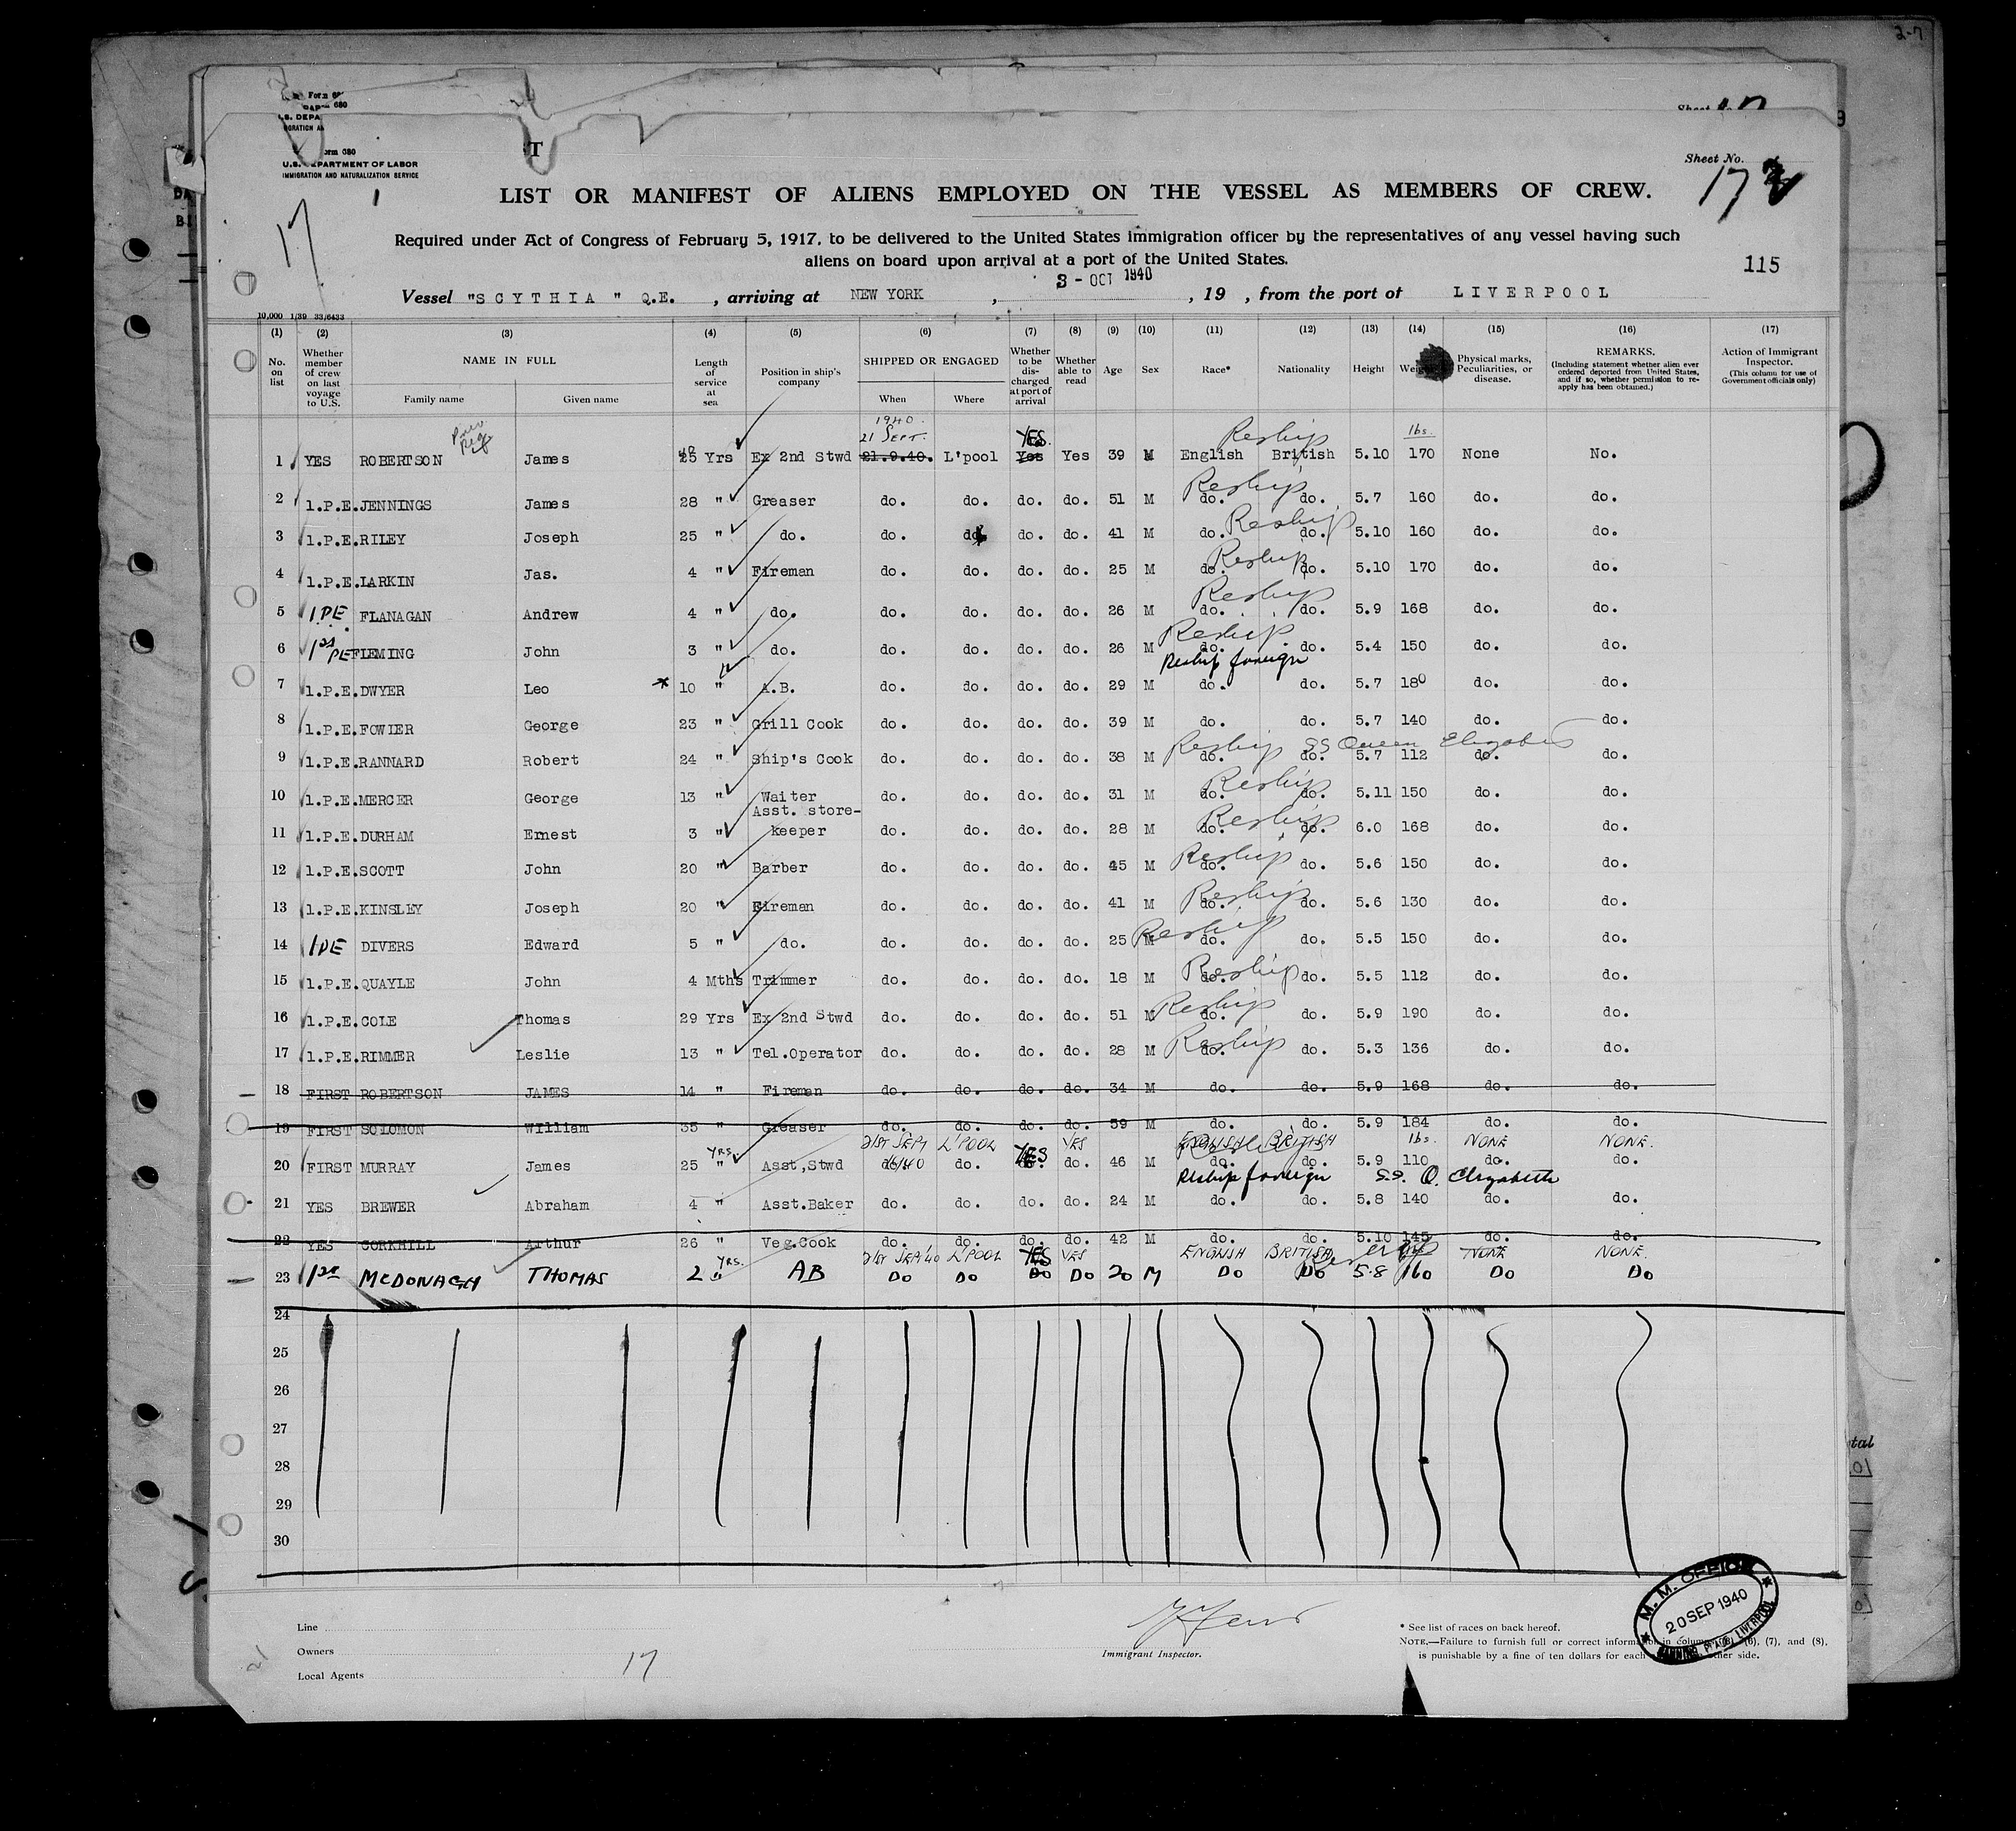 2-7
Form 680
U.S. DEPARTMENT OF LABOR
IMMIGRATION AND NATURALIZATION SERVICE
Sheet No.
17
17
LIST OR MANIFEST OF ALIENS EMPLOYED ON THE VESSEL AS MEMBERS OF CREW.
Required under Act of Congress of February 5, 1917, to be delivered to the United States immigration officer by the representatives of any vessel having such
aliens on board upon arrival at a port of the United States.
115
3 - OCT 1940
Vessel "SCYTHIA" Q.E. , arriving at NEW YORK , , 19 , from the port of LIVERPOOL
10,000 1/39 33/6433
(1) (2) (3) (4) (5) (6) (7) (8) (9) (10) (11) (12) (13) (14) (15) (16) (17)
No. on list Whether member of crew on last voyage to U.S. NAME IN FULL Family name Given name Length of service at sea Position in ship's company SHIPPED OR ENGAGED When Where Whether to be discharged at port of arrival Whether able to read Age Sex Race* Nationality Height Weight Physical marks, Peculiarities, or disease. REMARKS. (Including statement whether alien ever ordered deported from United States, and if so, whether permission to re-apply has been obtained.) Action of Immigrant Inspector. (This column for use of Government officials only)
1940
21 SEPT. YES. Reship lbs.
1 YES ROBERTSON James 25 Yrs Ex 2nd Stwd 21.9.40. L'pool Yes Yes 39 M English British 5.10 170 None No.
Reship
2 1.P.E. JENNINGS James 28 " Greaser do. do. do. do. 51 M do. do. 5.7 160 do. do.
Reship
3 1.P.E. RILEY Joseph 25 " do. do. do. do. do. 41 M do. do. 5.10 160 do. do.
Reship
4 1.P.E. LARKIN Jas. 4 " Fireman do. do. do. do. 25 M do. do. 5.10 170 do. do.
Reship
5 1PE FLANAGAN Andrew 4 " do. do. do. do. do. 26 M do. do. 5.9 168 do. do.
Reship
6 1st PE FLEMING John 3 " do. do. do. do. do. 26 M do. do. 5.4 150 do. do.
Reship foreign
7 1.P.E. DWYER Leo 10 " A.B. do. do. do. do. 29 M do. do. 5.7 180 do. do.
8 1.P.E. FOWLER George 23 " Grill Cook do. do. do. do. 39 M do. do. 5.7 140 do. do.
Reship SS Queen Elizabeth
9 1.P.E. RANNARD Robert 24 " Ship's Cook do. do. do. do. 38 M do. do. 5.7 112 do. do.
Reship
10 1.P.E. MERCER George 13 " Waiter do. do. do. do. 31 M do. do. 5.11 150 do. do.
Asst. store- Reship
11 1.P.E. DURHAM Ernest 3 " keeper do. do. do. do. 28 M do. do. 6.0 168 do. do.
Reship
12 1.P.E. SCOTT John 20 " Barber do. do. do. do. 45 M do. do. 5.6 150 do. do.
Reship
13 1.P.E. KINSLEY Joseph 20 " Fireman do. do. do. do. 41 M do. do. 5.6 130 do. do.
Reship
14 1PE DIVERS Edward 5 " do. do. do. do. do. 25 M do. do. 5.5 150 do. do.
Reship
15 1.P.E. QUAYLE John 4 Mths Trimmer do. do. do. do. 18 M do. do. 5.5 112 do. do.
Reship
16 1.P.E. COLE Thomas 29 Yrs Ex 2nd Stwd do. do. do. do. 51 M do. do. 5.9 190 do. do.
Reship
17 1.P.E. RIMMER Leslie 13 " Tel.Operator do. do. do. do. 28 M do. do. 5.3 136 do. do.
18 FIRST ROBERTSON JAMES 14 " Fireman do. do. do. do. 34 M do. do. 5.9 168 do. do.
19 FIRST SOLOMON William 35 " Greaser do. do. do. do. 59 M do. do. 5.9 184 do. do.
YRS. 21ST SEPT L'POOL YES YES ENGLISH BRITISH lbs. NONE NONE.
20 FIRST MURRAY James 25 " Asst,Stwd do. do. do. do. 46 M do. do. 5.9 110 do. do.
Reship foreign S.S. Q. Elizabeth
21 YES BREWER Abraham 4 " Asst.Baker do. do. do. do. 24 M do. do. 5.8 140 do. do.
22 YES CORKHILL Arthur 26 " Veg.Cook do. do. do. do. 42 M do. do. 5.10 145 do. do.
YRS. 21ST SEP'40 L'POOL YES YES ENGLISH BRITISH NONE NONE.
23 1st McDONAGH THOMAS 2 " AB DO DO DO DO 20 M DO DO 5.8 160 DO DO
24
25
26
27
28
29
30
Line
Owners
Local Agents
17
Immigrant Inspector.
* See list of races on back hereof.
NOTE.—Failure to furnish full or correct information in columns (6), (7), and (8),
is punishable by a fine of ten dollars for each other side.
M. M. OFFICE
20 SEP 1940
LIVERPOOL